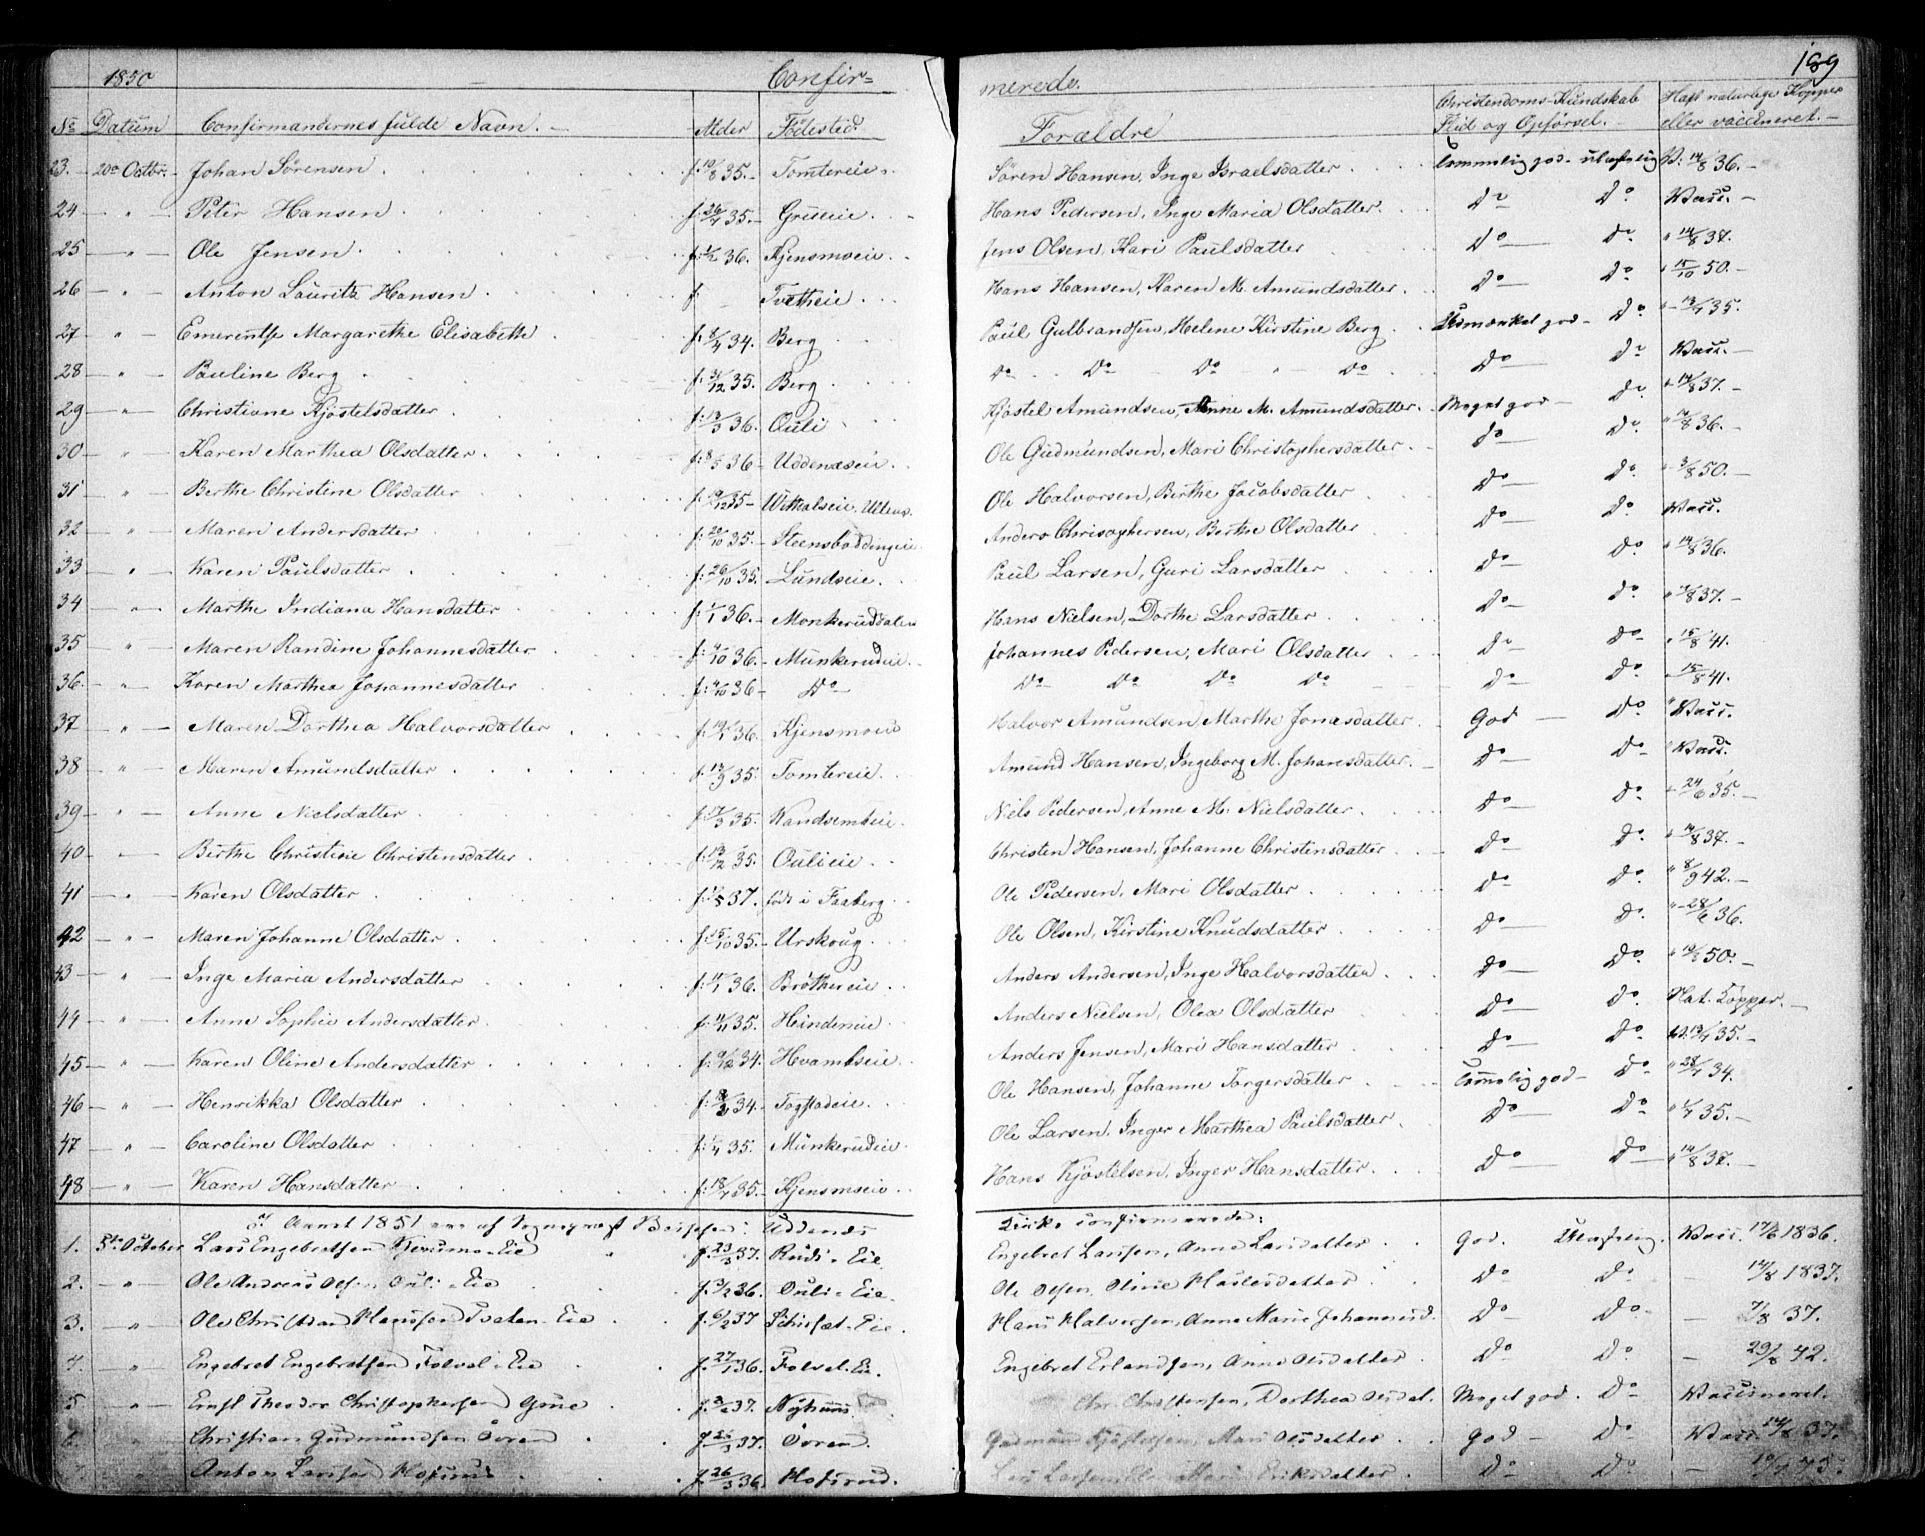 1850 — Confir= merede. 189
No Datum Confirmandernes fulde Navn. — Alder Fødested. Forældre Christendoms-Kundskab Flid og Opførsel. — Havt naturlige Kopper eller vaccineret. —
23. 20e Octbr. Johan Sørensen f. 10/8 35. Tomtereie. Søren Hansen, Inge Israelsdatter Temmelig god - ulastelig V. 14/8 36. —
24 " Peter Hansen f. 26/7 35. Grueeie. Hans Pedersen, Inge Maria Olsdatter. Do Do Vacc. —
25 " Ole Jensen f. 36. Kjensmoeie. Jens Olsen, Kari Paulsdatter Do Do " 14/8 37.
26 " Anton Lauritz Hansen f. Tvetheie Hans Hansen, Karen M. Amundsdatter Do Do " 15/10 50. —
27 " Emerentse Margarethe Elisabeth f. 8/4 34. Berg Paul Gulbrandsen, Helene Kirstine Berg Udmærket god - Do " 13/7 35.
28 " Pauline Berg f. 31/12 35. Berg Do Do Do Do Do Do Vacc. —
29 " Christiane Kjøstelsdatter f. 13/3 36. Ouli Kjøstel Amundsen, Anne M. Amundsdatter. Meget god — Do " 14/8 37. —
30 " Karen Marthea Olsdatter f. 8/5 36 Uddenæseie Ole Gudmundsen, Mari Christophersdatter Do Do " 14/8 36. —
31 " Berthe Christine Olsdatter f. 19/12 35 — Withalseie, Ullens. Ole Halvorsen, Berthe Jacobsdatter Do Do " 3/8 50. —
32 " Maren Andersdatter f. 20/10 35. Steensboddingeie Anders Chrisophersen, Berthe Olsdatter Do Do Vacc.
33 " Karen Paulsdatter f. 26/10 35. Lundseie. Paul Larsen, Guri Larsdatter Do Do " 14/8 36.
34 " Marthe Indiana Hansdatter f. 1/1 36. — Monkeruddalen Hans Nielsen, Dorthe Larsdatter Do Do 37. —
35 " Maren Randine Johannesdatter f. 4/10 36. — Munkerudeie Johannes Pedersen, Mari Olsdatter Do Do " 15/8 41.
36. " Karen Marthea Johannesdatter f. 4/10 36 — Do Do Do Do Do Do Do 15/8 41.
37 " Maren Dorthea Halvorsdatter f. 19/1 36. Kjensmoeie Halvor Amundsen, Marthe Jonasdatter God — Do " Vacc.
38 " Maren Amundsdatter f. 35. Tomtereie. Amund Hansen, Ingeborg M. Johansdatter. Do Do " Vacc.
39 " Anne Nielsdatter f. 17/3 35. Kandsembeie. Niels Pedersen, Anne M. Nielsdatter Do Do " 24/6 35. —
40 Berthe Christine Christensdatter f. 13/12 35. Oulieie Christen Hansen, Johanne Christensdatter Do Do " 14/8 37. —
41 " Karen Olsdatter f. 37. født i Faaberg Ole Pedersen, Mari Olsdatter Do Do " 8/9 42. —
42 " Maren Johanne Olsdatter f. 15/10 35. — Urskoug Ole Olsen, Kirstine Knudsdatter Do Do " 28/6 36.
43 " Inge Maria Andersdatter f. 36. Brøthereie Anders Andersen, Inge Halvorsdatter Do Do 50. —
44 " Anne Sophie Andersdatter f. 35. Heindereie Anders Nielsen, Olea Olsdatter Do Do Nat. Kopper. —
45 " Karen Oline Andersdatter f. 34. Hvambseie Anders Jensen, Mari Hansdatter Do Do 13/7 35. —
46 " Henrikka Olsdatter f. 34. Fogstadeie. Ole Hansen, Johanne Torgersdatter Temmelig god — Do " 28/7 34.
47 " Caroline Olsdatter f. 35. Munkerudeie Ole Larsen, Inger Marthea Paulsdatter Do Do " 1/7 35. —
48 " Karen Hansdatter f. 18/7 35. Kjensmoeie Hans Kjøstelsen, Inger Hansdatter Do Do " 14/8 37. —
Aaret 1851 ere af Sognepræst Uddenæs Kirke confirmerede:
1. 5te October Lars Engebretsen Kjensmo-Eie f. 23/3 37. Ruds-Eie Engebret Larsen, Anne Larsdatter God. Ulastelig. Vacc. 17/6 1836.
2. " Ole Andreas Olsen Ouli-Eie f. 36. Ouli-Eie. Ole Olsen, Oline Do Do — 14/8 1837.
3. " Ole Christian Hansen Tveten-Eie f. 6/2 37 Eie. Hans Halvorsen, Anne Marie Johannesd. Do Do — 7/8 37.
4. " Engebret Engebretsen Folval-Eie f. 27/1 36. Folval-Eie. Engebret Erlandsen, Anne Olsdatter Do Do — 29/8 42.
5 " Ernst Theodor Christophersen Grue f. 37. Chr. Christensen, Dorthea Olsdat. Meget god. Do Vaccineret.
6. Christian Gudmundsen Ovren f. 37. Ovren. Gudmund Kjøstelsen, Mari Olsdatter God — Do Vacc. 14/8 37.
7. Anton Larsen Hofsrud f. 26/3 36. Hofsrud. Lars Larsen, Marie Eriksdatter Do Do